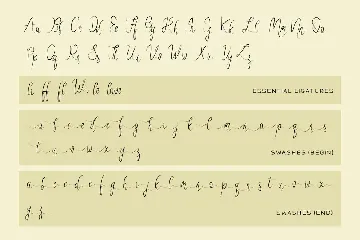 Aa Bb Cc Dd Ee Ff Gg Hh Ii Jj Kk Ll Mm Nn Oo
Pp Qq Rr Ss Tt Uu Vv Ww Xx Yy Zz
ESSENTIAL LIGATURES
a b c d e f g h i j k l m n o p q r s
t u v w x y z
SWASHES (BEGIN)
a b c d e f g h i j k l m n o p q r s t u v w x
y z
SWASHES (END)